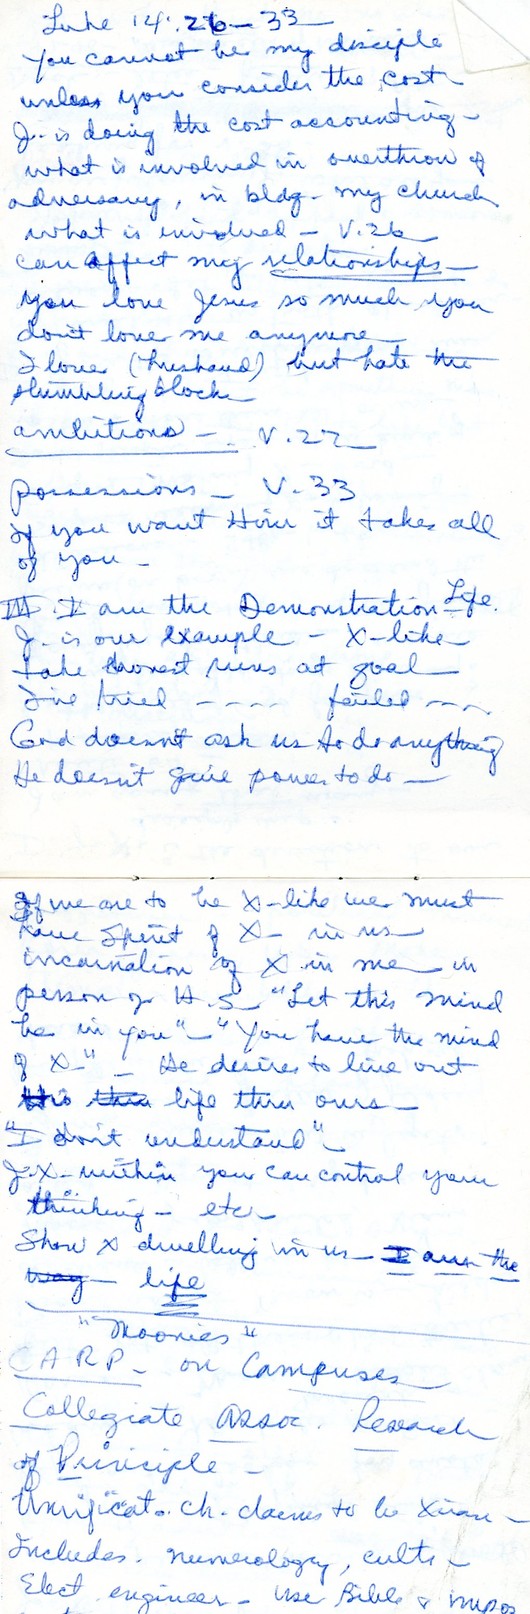 Luke 14:26-33
You cannot be my disciple
unless you consider the cost
J. is doing the cost accounting -
what is involved in overthrow of
adversary, in bldg. my church
what is involved - V. 26
can affect my relationships -
you love Jesus so much you
don't love me anymore
I love (husband) but hate the
stumbling block
ambitions - V. 27
possessions - V. 33
if you want Him it takes all
of you -
III I am the Demonstration Life.
J. is our example - X-like
take honest runs at goal
I've tried ---- failed ----
God doesn't ask us to do anything
He doesn't give power to do -
If we are to be X-like we must
have Spirit of X in us
incarnation of X in me in
person of H.S. "Let this mind
be in you" - "You have the mind
of X" - He desires to live out
His life thru ours -
"I don't understand" -
J.X. within you can control your
thinking - etc
Show X dwelling in us - I am the
way - life
"Moonies"
CARP - on Campuses
Collegiate Assoc. Research
of Principle -
Unificat. ch. claims to be Xian -
Includes. numerology, cults -
Elect. engineer - use Bible &